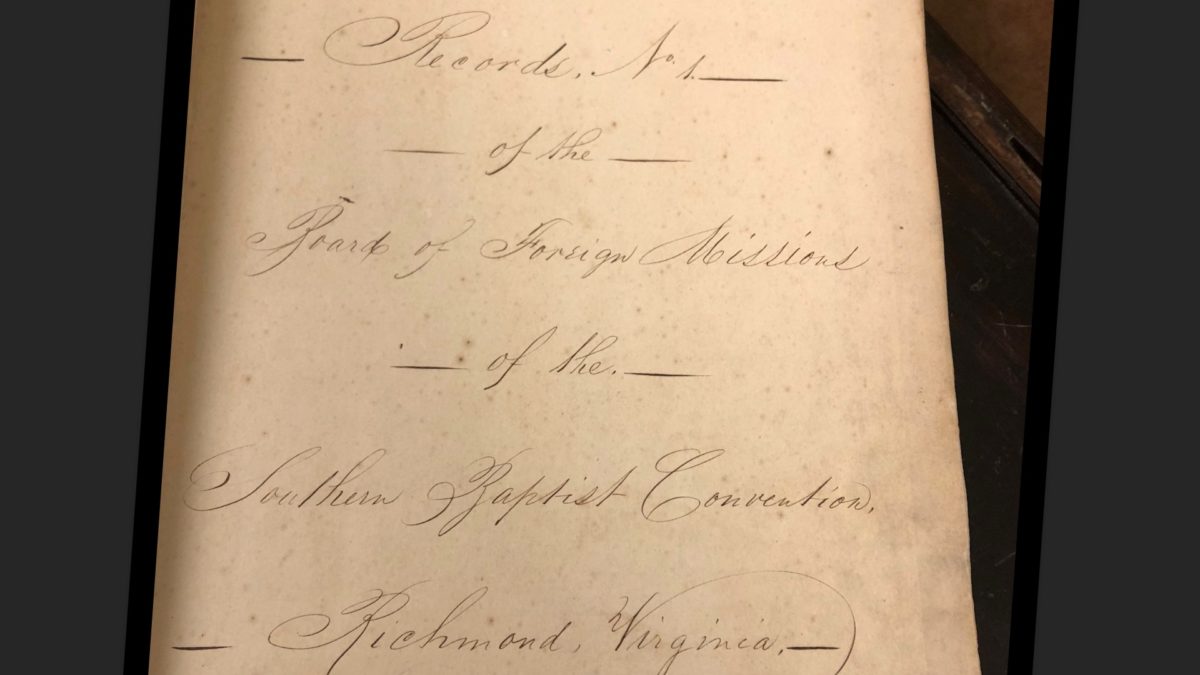 — Records, No. 1. —
— of the —
Board of Foreign Missions
— of the. —
Southern Baptist Convention,
— Richmond, Virginia, —